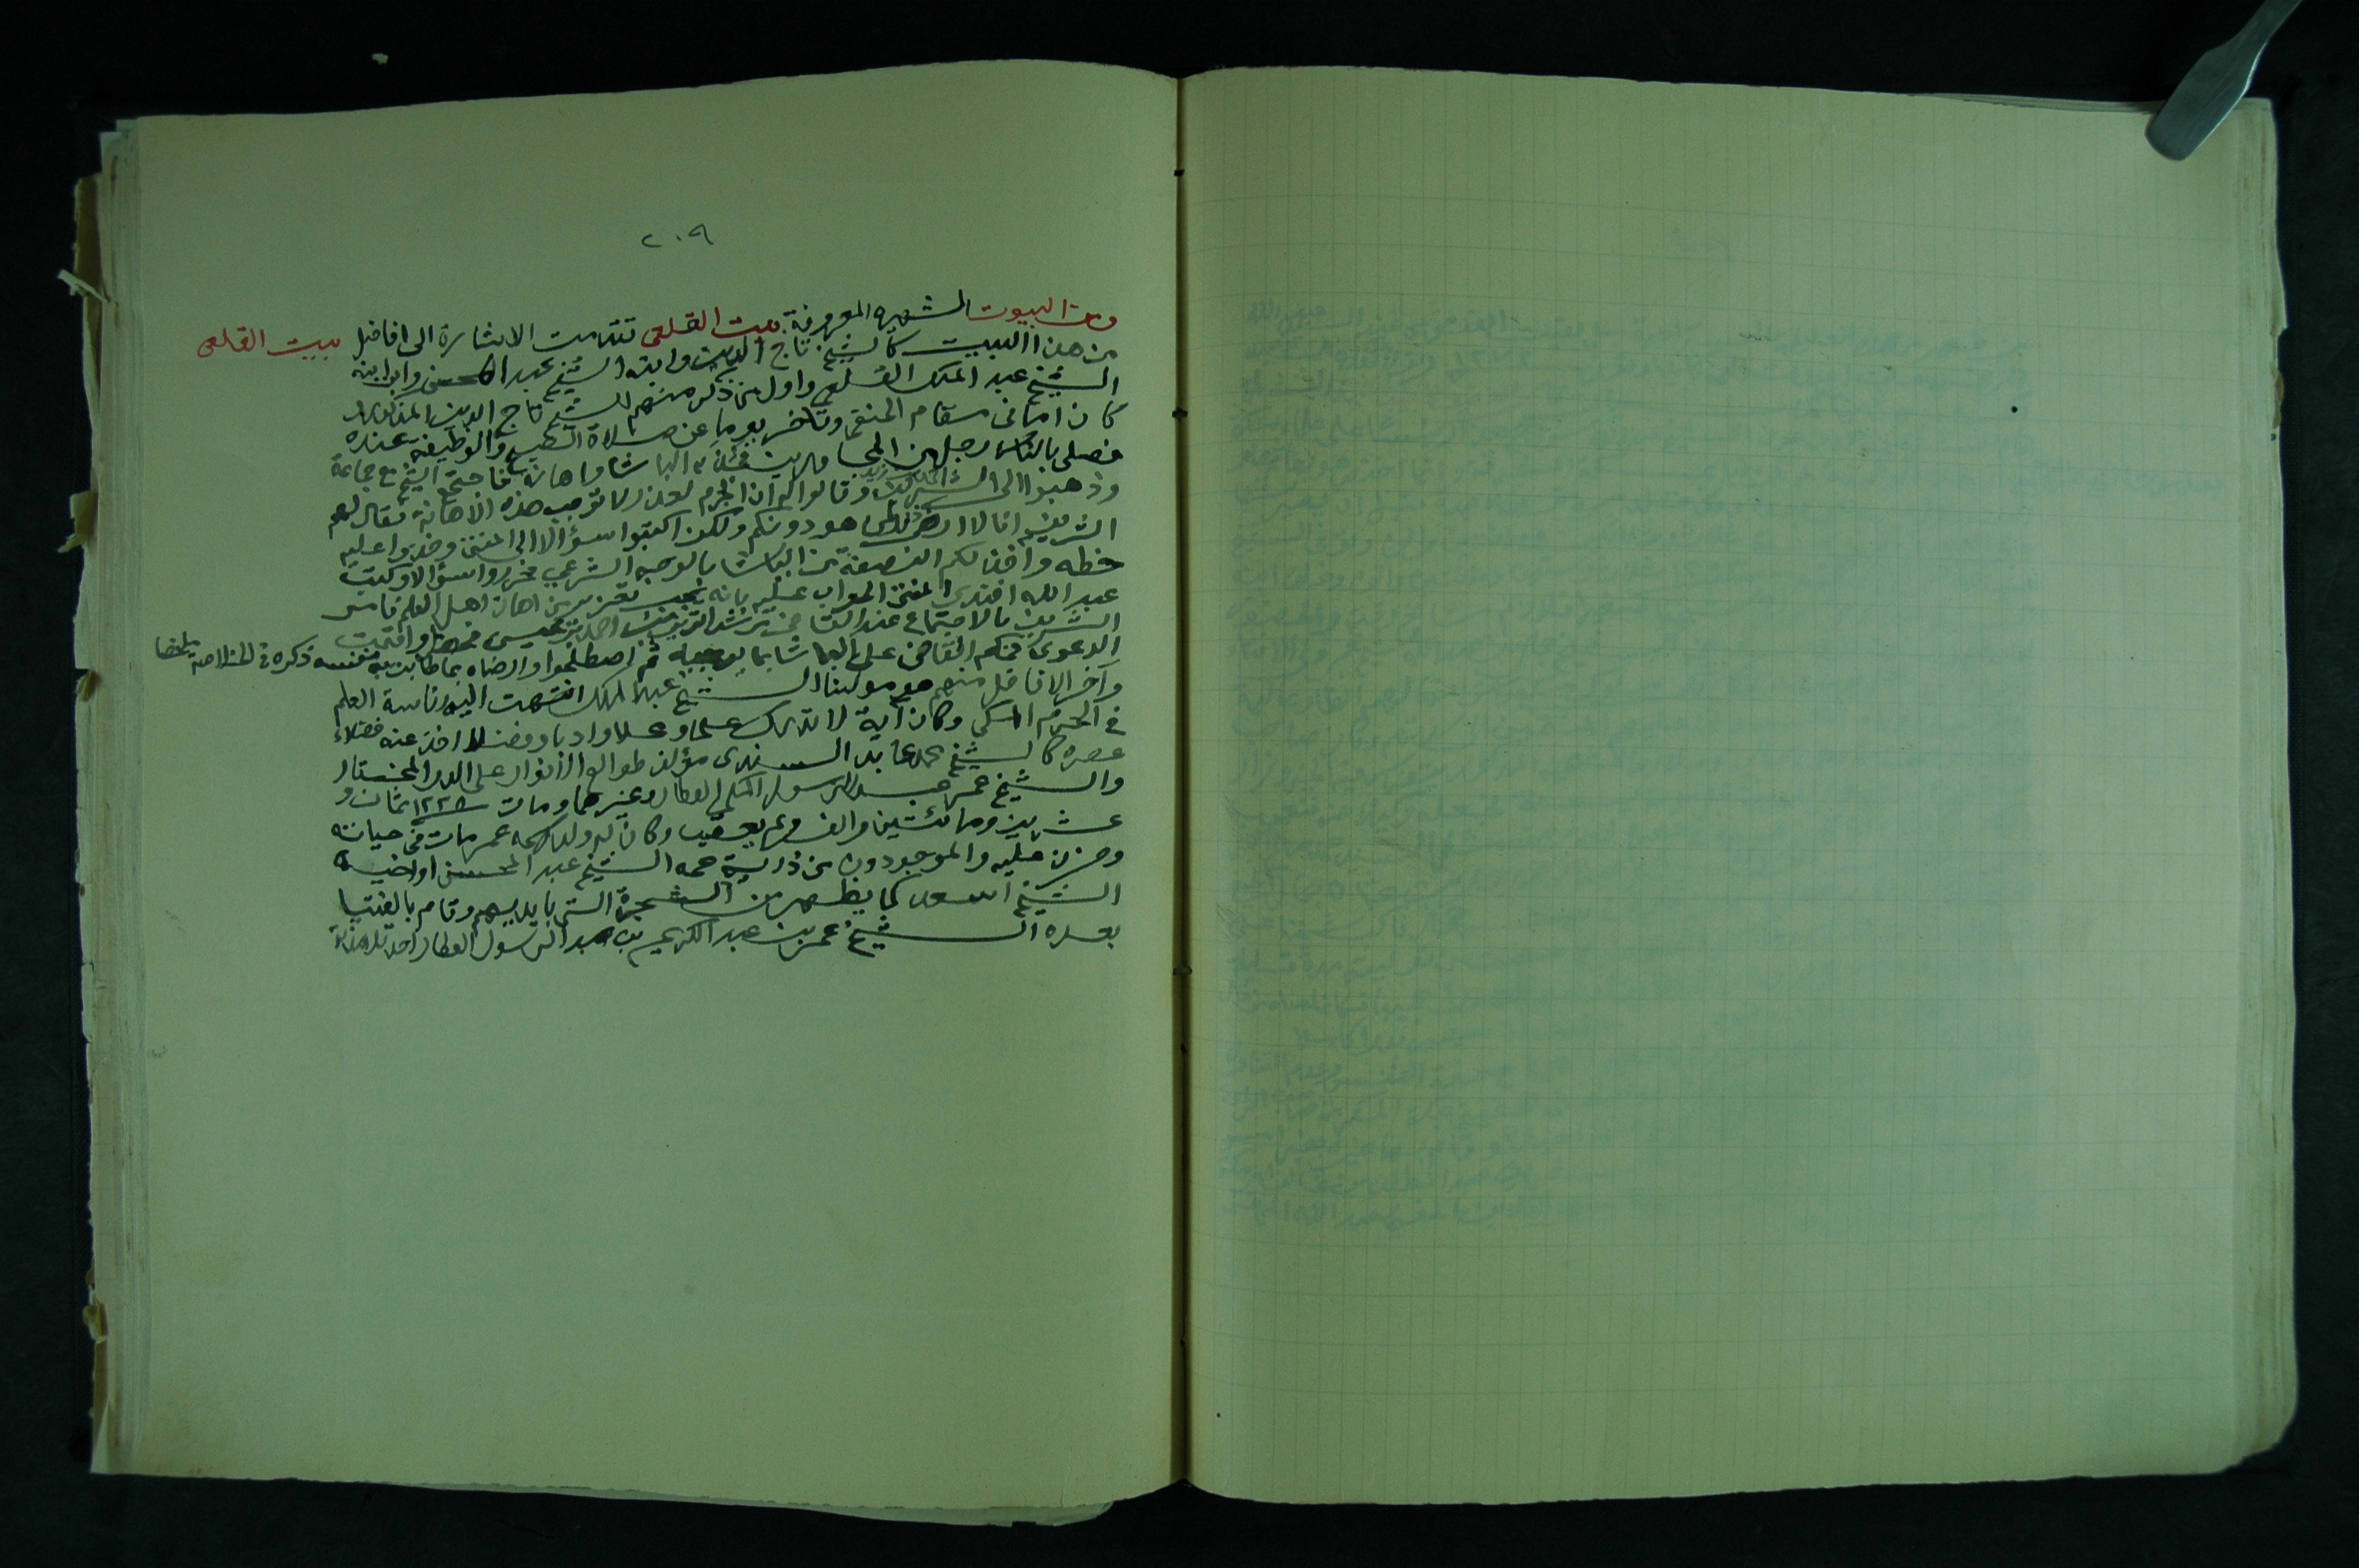 ٢٠٩
ومن البيوت الشهيرة المعروفة بيت القلعي تقدمت الاشارة الى افاضل
بيت القلعي
من هذا البيت كالشيخ تاج الدين وابنه الشيخ عبد المحسن وابن ابنه
الشيخ عبد الملك القلعي واول من ذكر منهم الشيخ تاج الدين المذكور
كان اماما في مقام الحنفي وتأخر يوما عن صلاة الصبح والوظيفة عنده
فصلى بالناس رجل من المجاورين الباشا واهانه فاجتمع الشيخ مع جماعة
وذهبوا الى الشريف وقالوا له ان الجرم لا توجب هذه الاهانة فقال لهم
الشريف انا لا ارضى هو دونكم ولكن اكتبوا سؤالا الى المفتي وخذوا عليه
خطه وآخذ لكم النصفة من الباشا بالوجه الشرعي فحرروا سؤالا وكتب
عبد الله افندي المفتي الجواب عليه بانه يجب تعزير من اهان اهل العلم فامر
الشريف بالاجتماع عند القاضي احمد واقيمت
الدعوى فحكم القاضي على الباشا بما يوجبه ثم اصطلحوا وارضاه بما طابت به نفسه ذكره في الخلاصة ملخصا
وآخر الافاضل منهم هو مولانا الشيخ عبد الملك انتهت اليه رئاسة العلم
في الحرم المكي وكان آية لا تدرك علما وعملا وادبا وفضلا اخذ عنه فضلاء
عصره كالشيخ محمد عابد السندي مؤلف طوالع الانوار على الدر المختار
والشيخ عمر عبد الرسول المكي العطار وغيرهما ومات سنة ١٢٢٨ ثمان و
عشرين ومائتين والف ولم يعقب وكان له ولد اسمه عمر مات في حياته
وحزن عليه والموجودون من ذرية عمه الشيخ عبد المحسن او اخيه
الشيخ اسعد كما يظهر من الشجرة التي بايديهم وقام بالفتيا
بعده الشيخ عمر بن عبد الكريم بن عبد الرسول العطار احد تلامذته